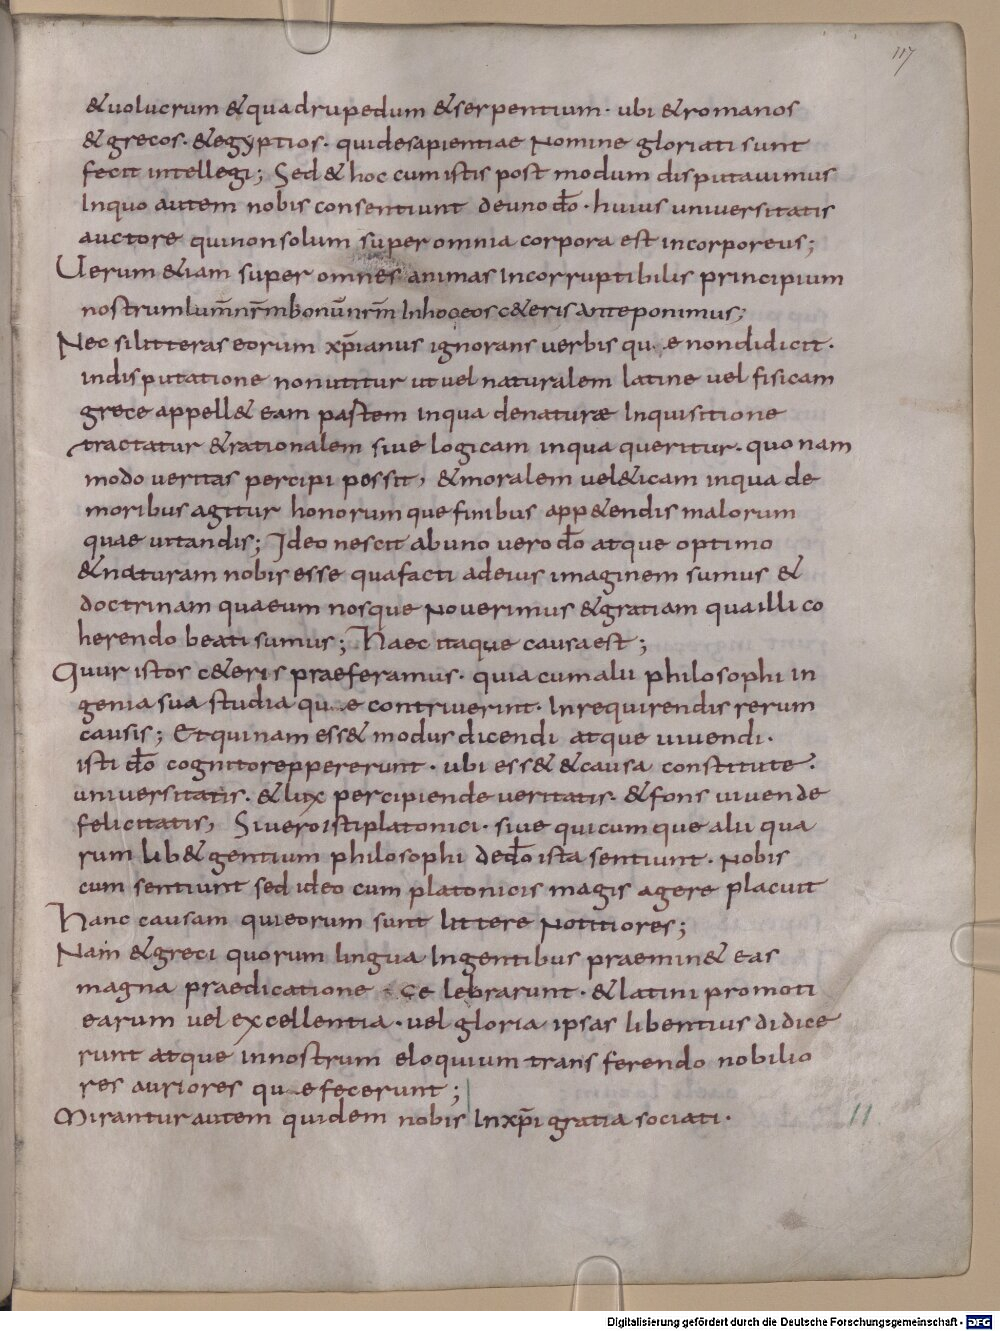 117
&uolucrum &quadrupedum &serpentium· ubi &romanos
&grecos· &egyptios· quidesapientiae Nomine gloriati sunt
fecit intellegi; Sed & hoc cum istis post modum disputauimus
Inquo autem nobis consentiunt deuno dō· huius uniuersitatis
auctore quinonsolum super omnia corpora est incorporeus;
Uerum &iam super omnes animas Incorruptibilis principium
nostrum lum̄ nr̄m bonūnr̄m Inhoc eos c&eris anteponimus;
Nec si litteras eorum xp̄ianus ignorans uerbis qu e non didicit·
indisputatione non utitur ut uel naturalem latine uel fisicam
grece appell& eam partem inqua denaturae Inquisitione
tractatur &rationalem siue logicam inqua queritur· quo nam
modo ueritas percipi possit, &moralem uel&icam inqua de
moribus agitur bonorum que finibus app&endis malorum
quae uitandis; Ideo nescit ab uno uero dō atque optimo
&naturam nobis esse quafacti adeius imaginem sumus &
doctrinam quaeum nosque Nouerimus &gratiam qua illi co
herendo beati sumus; Haec itaque causa est;
Quur istos c&eris praeferamus· quia cum alii philosophi in
genia sua studia qu e contriuerint· Inrequirendis rerum
causis; Etquinam ess& modus dicendi atque uiuendi·
isti dō cognito reppererunt· ubi ess& &causa constitute·
uniuersitatis· &lux percipiende ueritatis· &fons uiuende
felicitatis, Siuero istiplatonici· siue quicum que alii qua
rum lib& gentium philosophi de dō ista sentiunt· Nobis
cum sentiunt sed ideo cum platonicis magis agere placuit
Hanc causam quieorum sunt littere Notitiores;
Nam &greci quorum lingua Ingentibus praemin& eas
magna praedicatione ce lebrarunt· &latini promoti
earum uel excellentia· uel gloria ipsas libentius didice
runt atque innostrum eloquium trans ferendo nobilio
res auriores qu efecerunt;
Mirantur autem quidem nobis Inxp̄i gratia sociati·
11
Digitalisierung gefördert durch die Deutsche Forschungsgemeinschaft - DFG